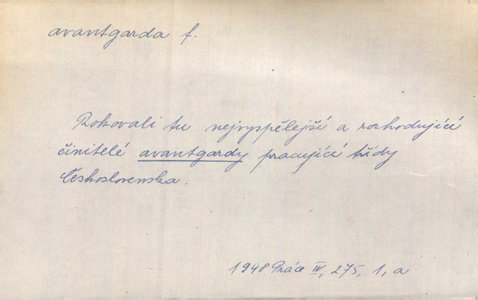 avantgarda f.
Rokovali tu nejvyspělejší a rozhodující
činitelé avantgardy pracující třídy
Československa.
1948 Práce IV, 275, 1, a